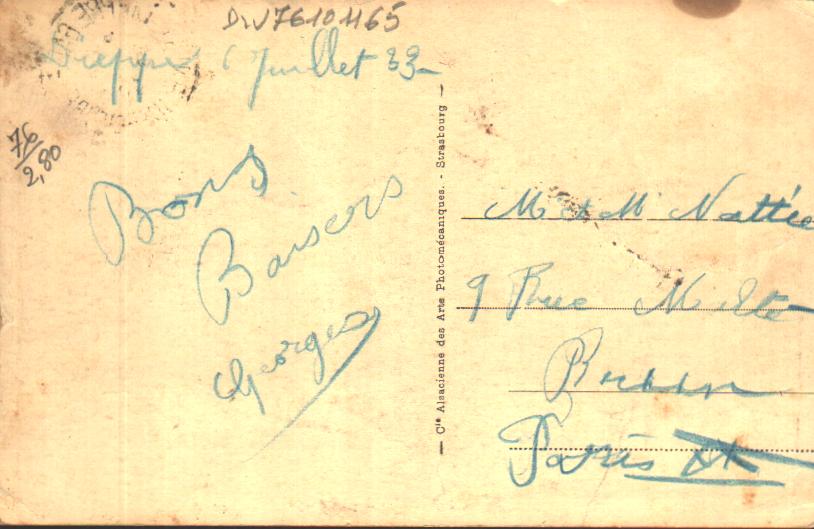 DIV76101165
Dieppe 6 Juillet 33
76/2,80
Bons
Baisers
Georges
— Cie Alsacienne des Arts Photomécaniques. - Strasbourg —
M et Mme Nattée
9 Rue Milte
Paris